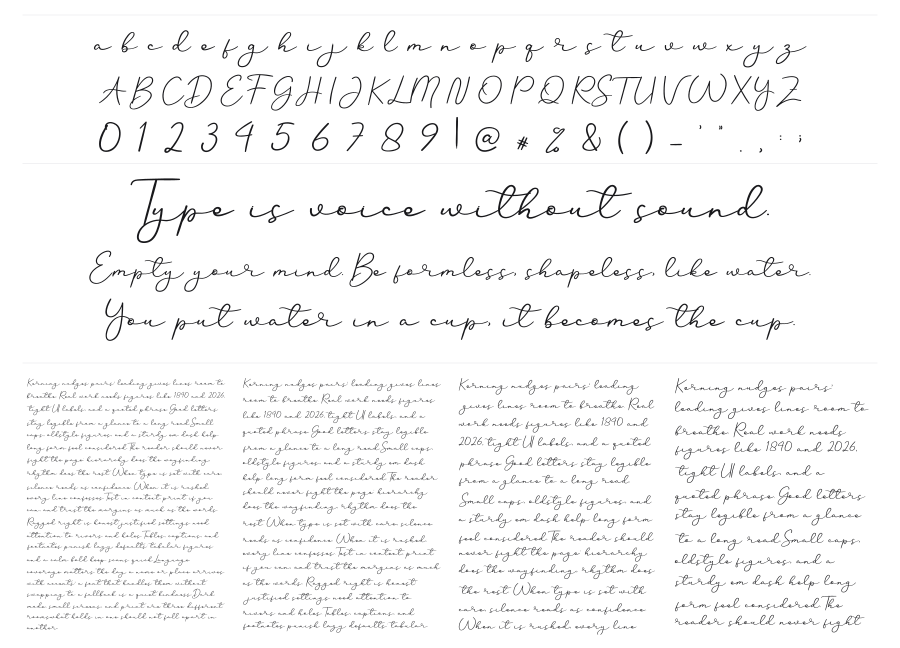 a b c d e f g h i j k l m n o p q r s t u v w x y z
A B C D E F G H I J K L M N O P Q R S T U V W X Y Z
0 1 2 3 4 5 6 7 8 9 | @ # % & ( ) _ ' " . , : ;
Type is voice without sound.
Empty your mind. Be formless, shapeless, like water.
You put water in a cup, it becomes the cup.
Kerning nudges pairs; leading gives lines room to
breathe Real work needs figures like 1890 and 2026,
tight UI labels, and a quoted phrase Good letters
stay legible from a glance to a long read Small
caps, oldstyle figures, and a sturdy em dash help
long form feel considered The reader should never
fight the page hierarchy does the wayfinding
rhythm does the rest When type is set with care,
silence reads as confidence When it is rushed
every line confesses Test in context print if you
can and trust the margins as much as the words
Ragged right is honest justified settings need
attention to rivers and holes Tables captions and
footnotes punish lazy defaults tabular figures
and a calm bold keep scans quick Language
coverage matters the day a name or place arrives
with accents a font that handles them without
swapping to a fallback is a quiet kindness Dark
mode small screens and print are three different
rooms what holds in one should not fall apart in
another
Kerning nudges pairs; leading gives lines
room to breathe Real work needs figures
like 1890 and 2026, tight UI labels, and a
quoted phrase Good letters stay legible
from a glance to a long read Small caps,
oldstyle figures, and a sturdy em dash
help long form feel considered The reader
should never fight the page hierarchy
does the wayfinding rhythm does the
rest When type is set with care, silence
reads as confidence When it is rushed
every line confesses Test in context print
if you can and trust the margins as much
as the words Ragged right is honest
justified settings need attention to
rivers and holes Tables captions and
footnotes punish lazy defaults tabular
Kerning nudges pairs; leading
gives lines room to breathe Real
work needs figures like 1890 and
2026, tight UI labels, and a quoted
phrase Good letters stay legible
from a glance to a long read
Small caps, oldstyle figures, and
a sturdy em dash help long form
feel considered The reader should
never fight the page hierarchy
does the wayfinding rhythm does
the rest When type is set with
care, silence reads as confidence
When it is rushed every line
Kerning nudges pairs;
leading gives lines room to
breathe Real work needs
figures like 1890 and 2026,
tight UI labels, and a
quoted phrase Good letters
stay legible from a glance
to a long read Small caps,
oldstyle figures, and a
sturdy em dash help long
form feel considered The
reader should never fight